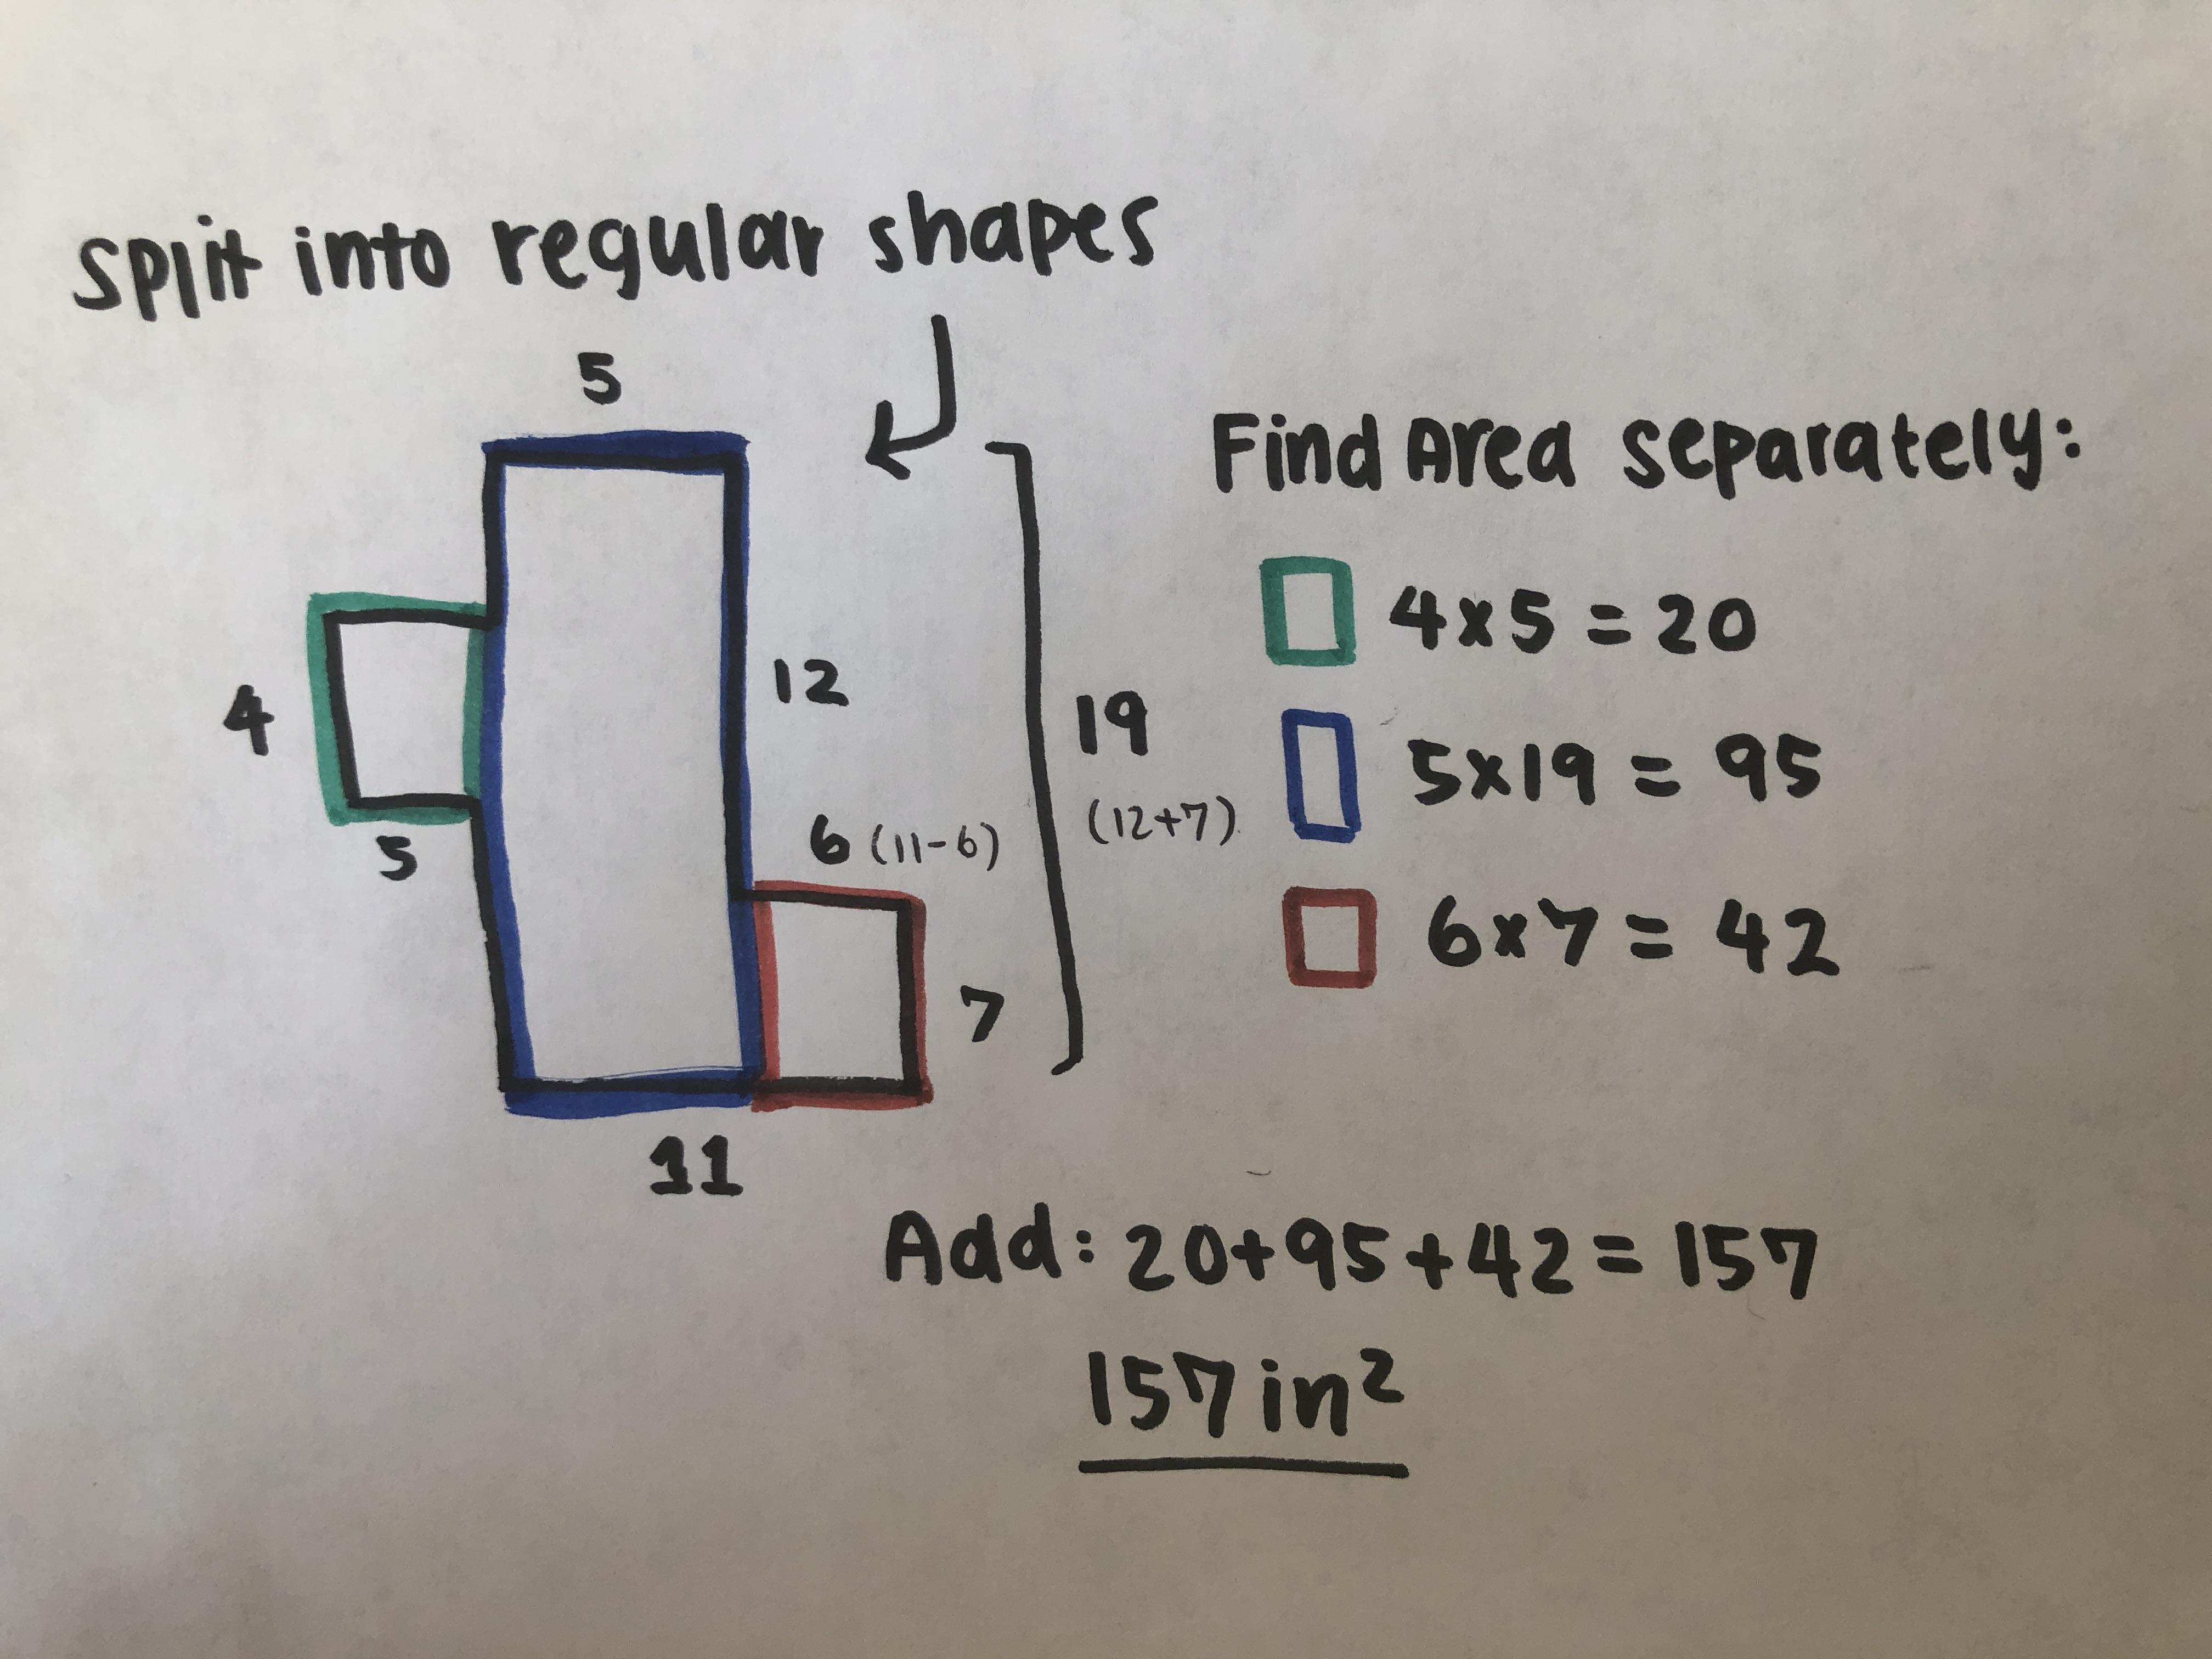 Split into regular shapes
5
4
5
12
6 (11-6)
7
11
19
(12+7)
Find Area separately:
4x5 = 20
5x19 = 95
6x7 = 42
Add: 20+95+42 = 157
157 in²